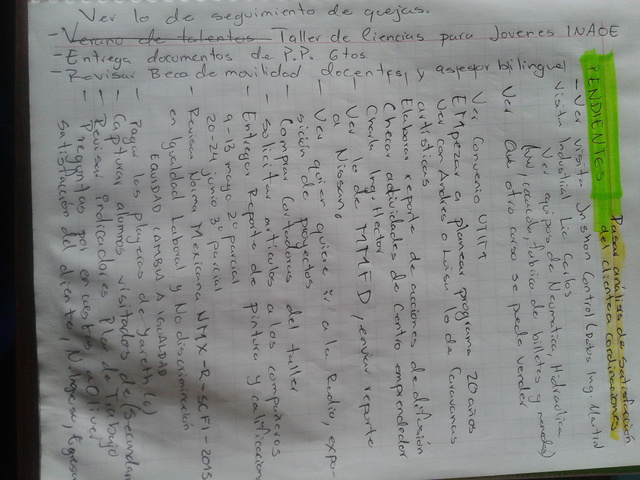 Ver lo de seguimiento de quejas.
- Verano de talentos Taller de Ciencias para Jovenes INAOE
- Entrega documentos de P.P. 6tos
- Revisar Beca de movilidad docentes, y asesor bilingue
Pasar analisis de satisfacción
del cliente a coordinaciones
PENDIENTES
- Ver visita Control Ing. Martin
Visita Industrial Lic Carlos
Ver equipos de Neumatica, Hidraulica
fabrica de billetes y moneda)
Ver Que otro curso se puede vender
Ver Convenio UTTM
Empezar a planear programa 20 años
Ver con Andres o Luisa lo de Caravanas
artisticas
Elaborar reporte de acciones de difusión
Checar actividades de Centro emprendedor
Charla Ing. Hector
Ver lo de MMFD, enviar reporte
a Nissano
- Ver quien quiere ir a la Radio, expo-
sición de proyectos
- Comprar Cortadoras del taller
- solicitar articulos a las compañias
- Entregar Reporte de pintura y calificaciones
9-13 mayo 2º parcial
20-24 junio 3º parcial
- Revisar Norma Mexicana NMX-R-SCFI-2015
en Igualdad Laboral y No discriminación
EQUIDAD CAMBIA A IGUALDAD
- Pagar las playeras de Yareth (2)
- Capturar alumnos visitados de (secundaria
- Revisar indicadores Plan de Trabajo
- Preguntas por encuestas a Oliver
satisfacción del cliente, N. Ingreso, Egreso